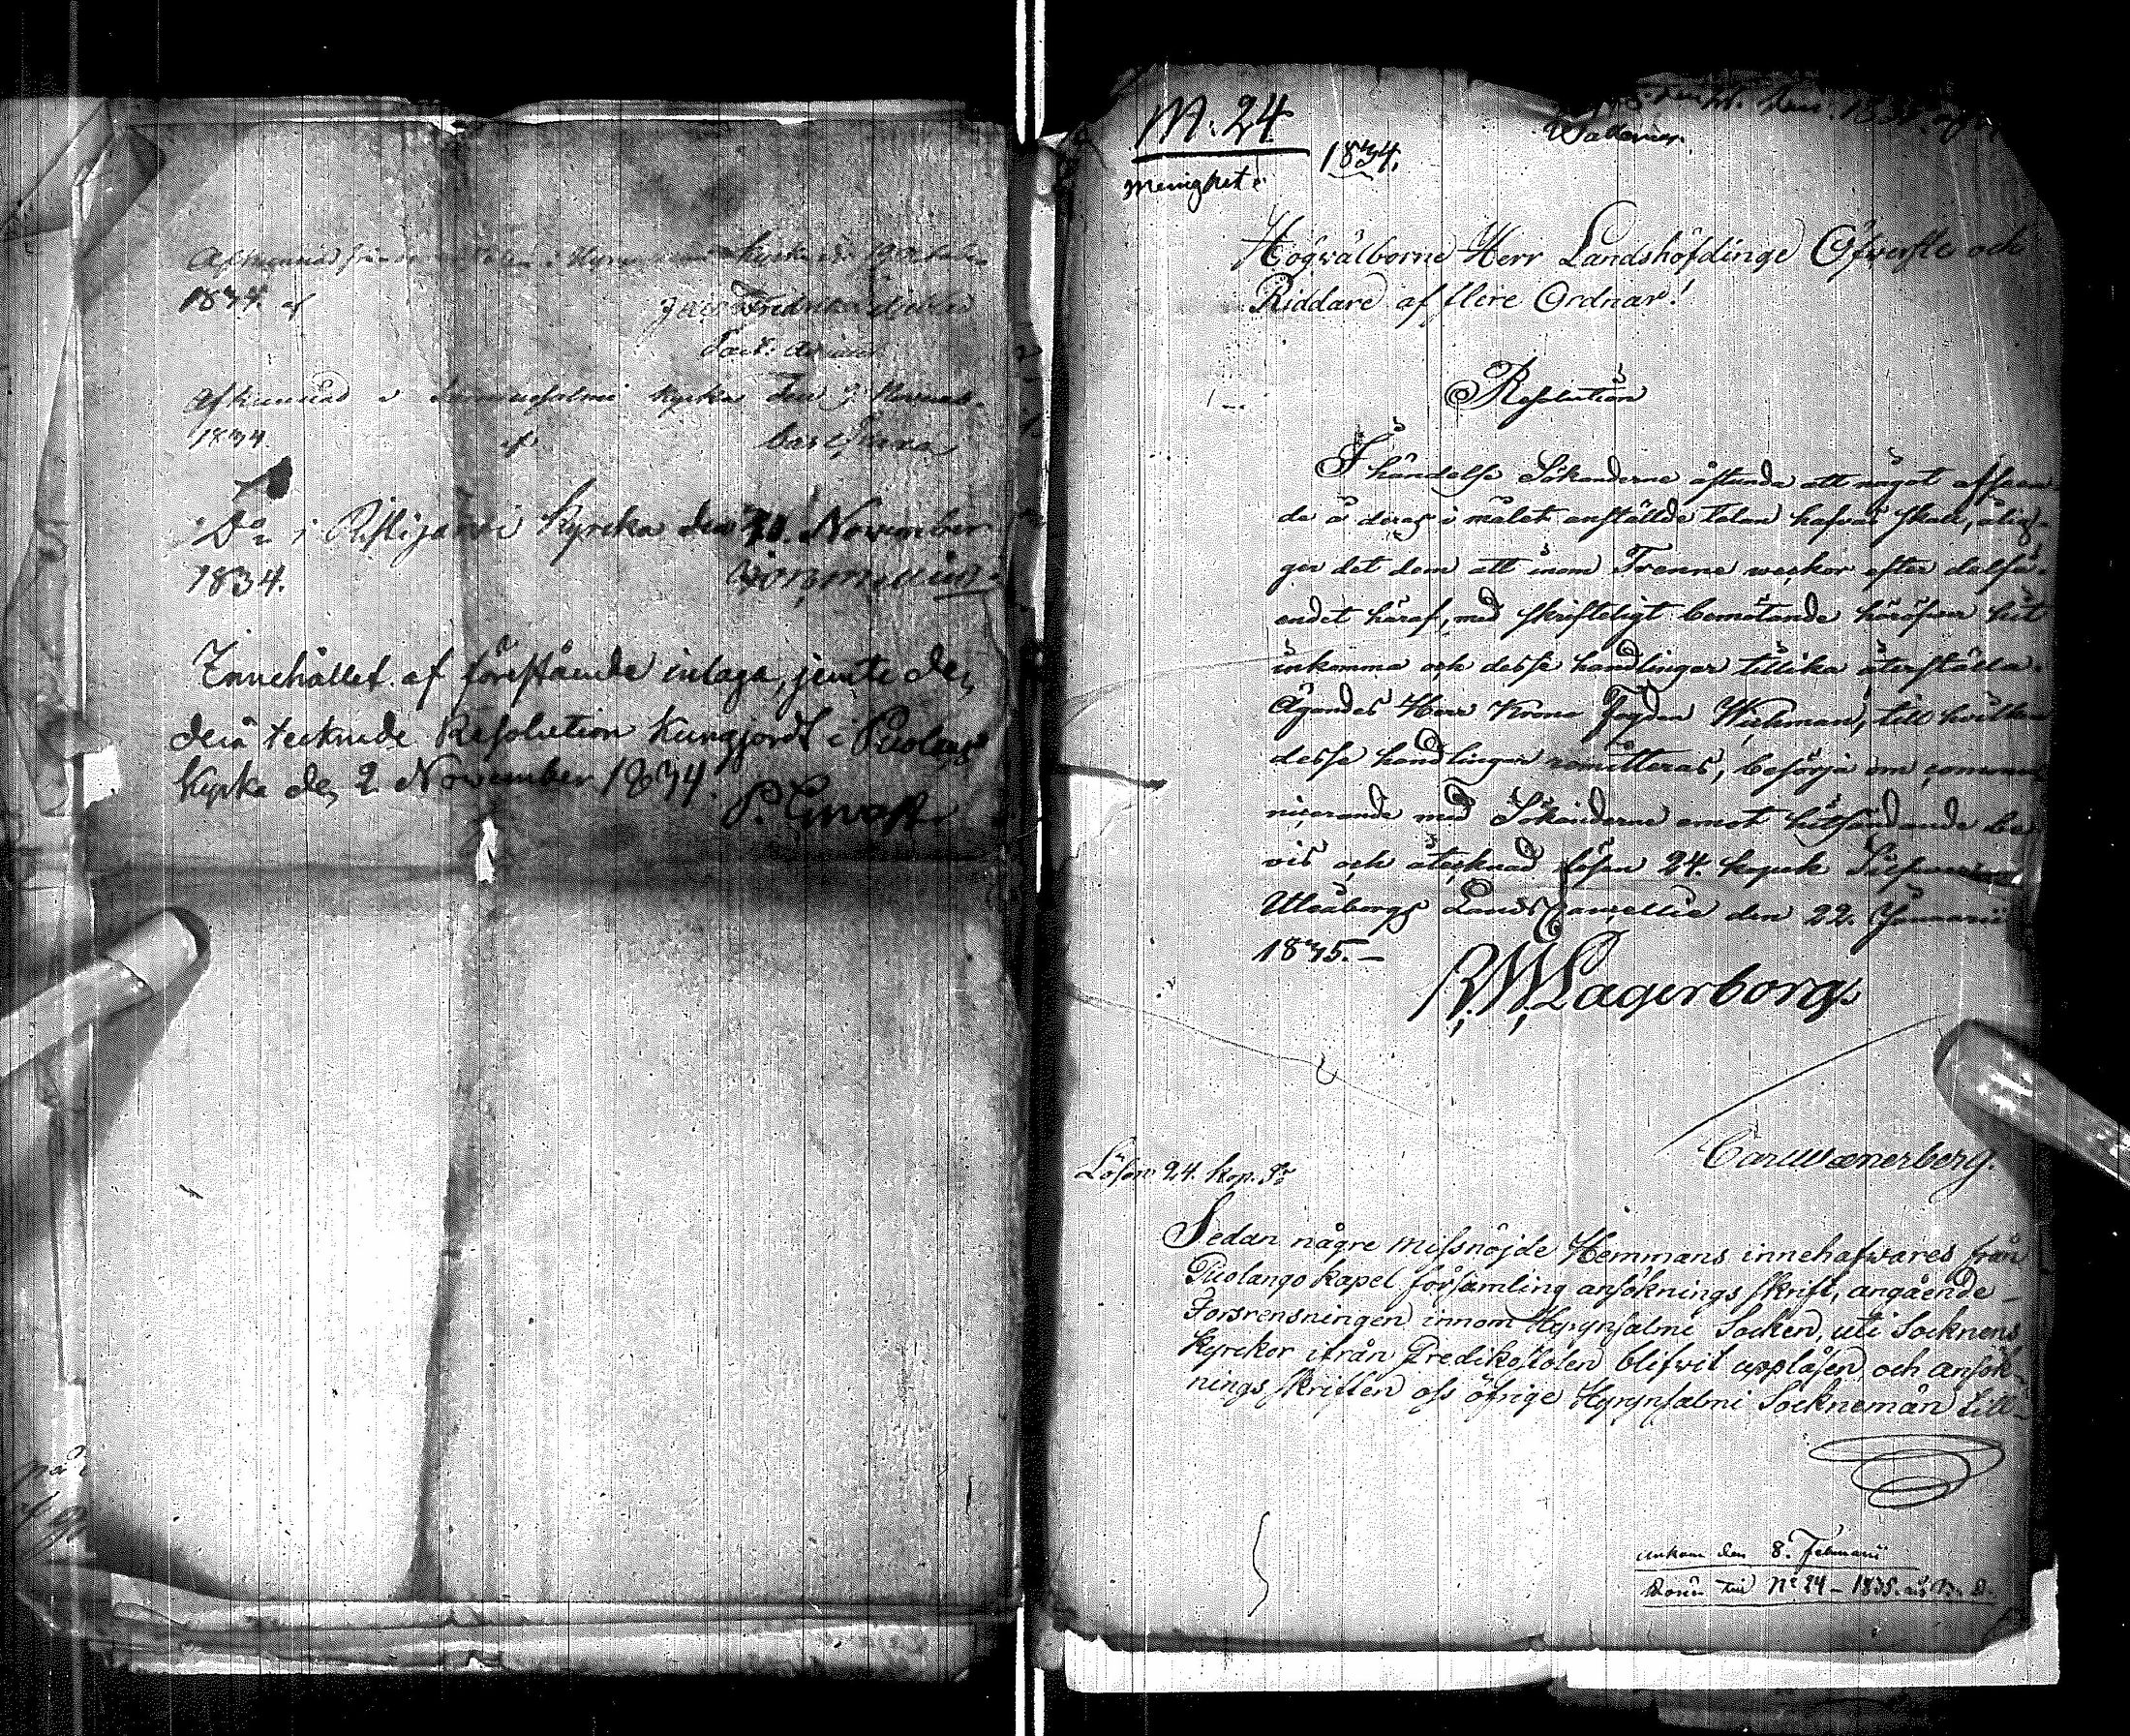 Afkunnad från
Kyrka d. 19 October
1834. af
Afkunnad i Kyrka den 9 November
1834 af
D:o i Ristijärvi Kyrcka den November
1834.
Innehållet af förestående inlaga, jemte den
derå tecknade Resolution kungjordt i Puolango
Kyrka den 2 November 1834.
M. 24
1834.
Menighet
Högvälborne Herr Landshöfdinge Öfwerste och
Riddare af flere Ordnar!
Resolution
I händelse Sökanderne åstunda att något afseen-
de å deras i målet anstälde talan hafvas skall, ålig-
ger det dem att inom Trenne weckor efter delfå-
endet häraf, med skrifteligt bemötande häröfver hit
inkomma och desse handlingar tillika återställa.
Ägandes Herr Krono Fogden Wichman, till hvilken
desse handlingar remitteras, besörja om commu-
nicerande med Sökanderne emot hitsändande be-
vis och åtecknad lösen 24. kopek Silfver
Uleåborgs Lands Cancellie den 22. Januarii
1835.—
R. W. Lagerborg
Carl Wænerberg.
Lösen 24. kop. S:r
Sedan någre missnöjde Hemmans innehafwares från
Puolango kapel församling ansöknings skrift, angående
Forsrensningen innom Hyrynsalmi Socken, uti Socknens
Kyrckor ifrån Predikstolen blifvit uppläsen, och ansök-
nings skriften oss öfrige Hyrynsalmi Sockнemän till-
Ankom den 8. Februarii
N:o 24 – 1835.